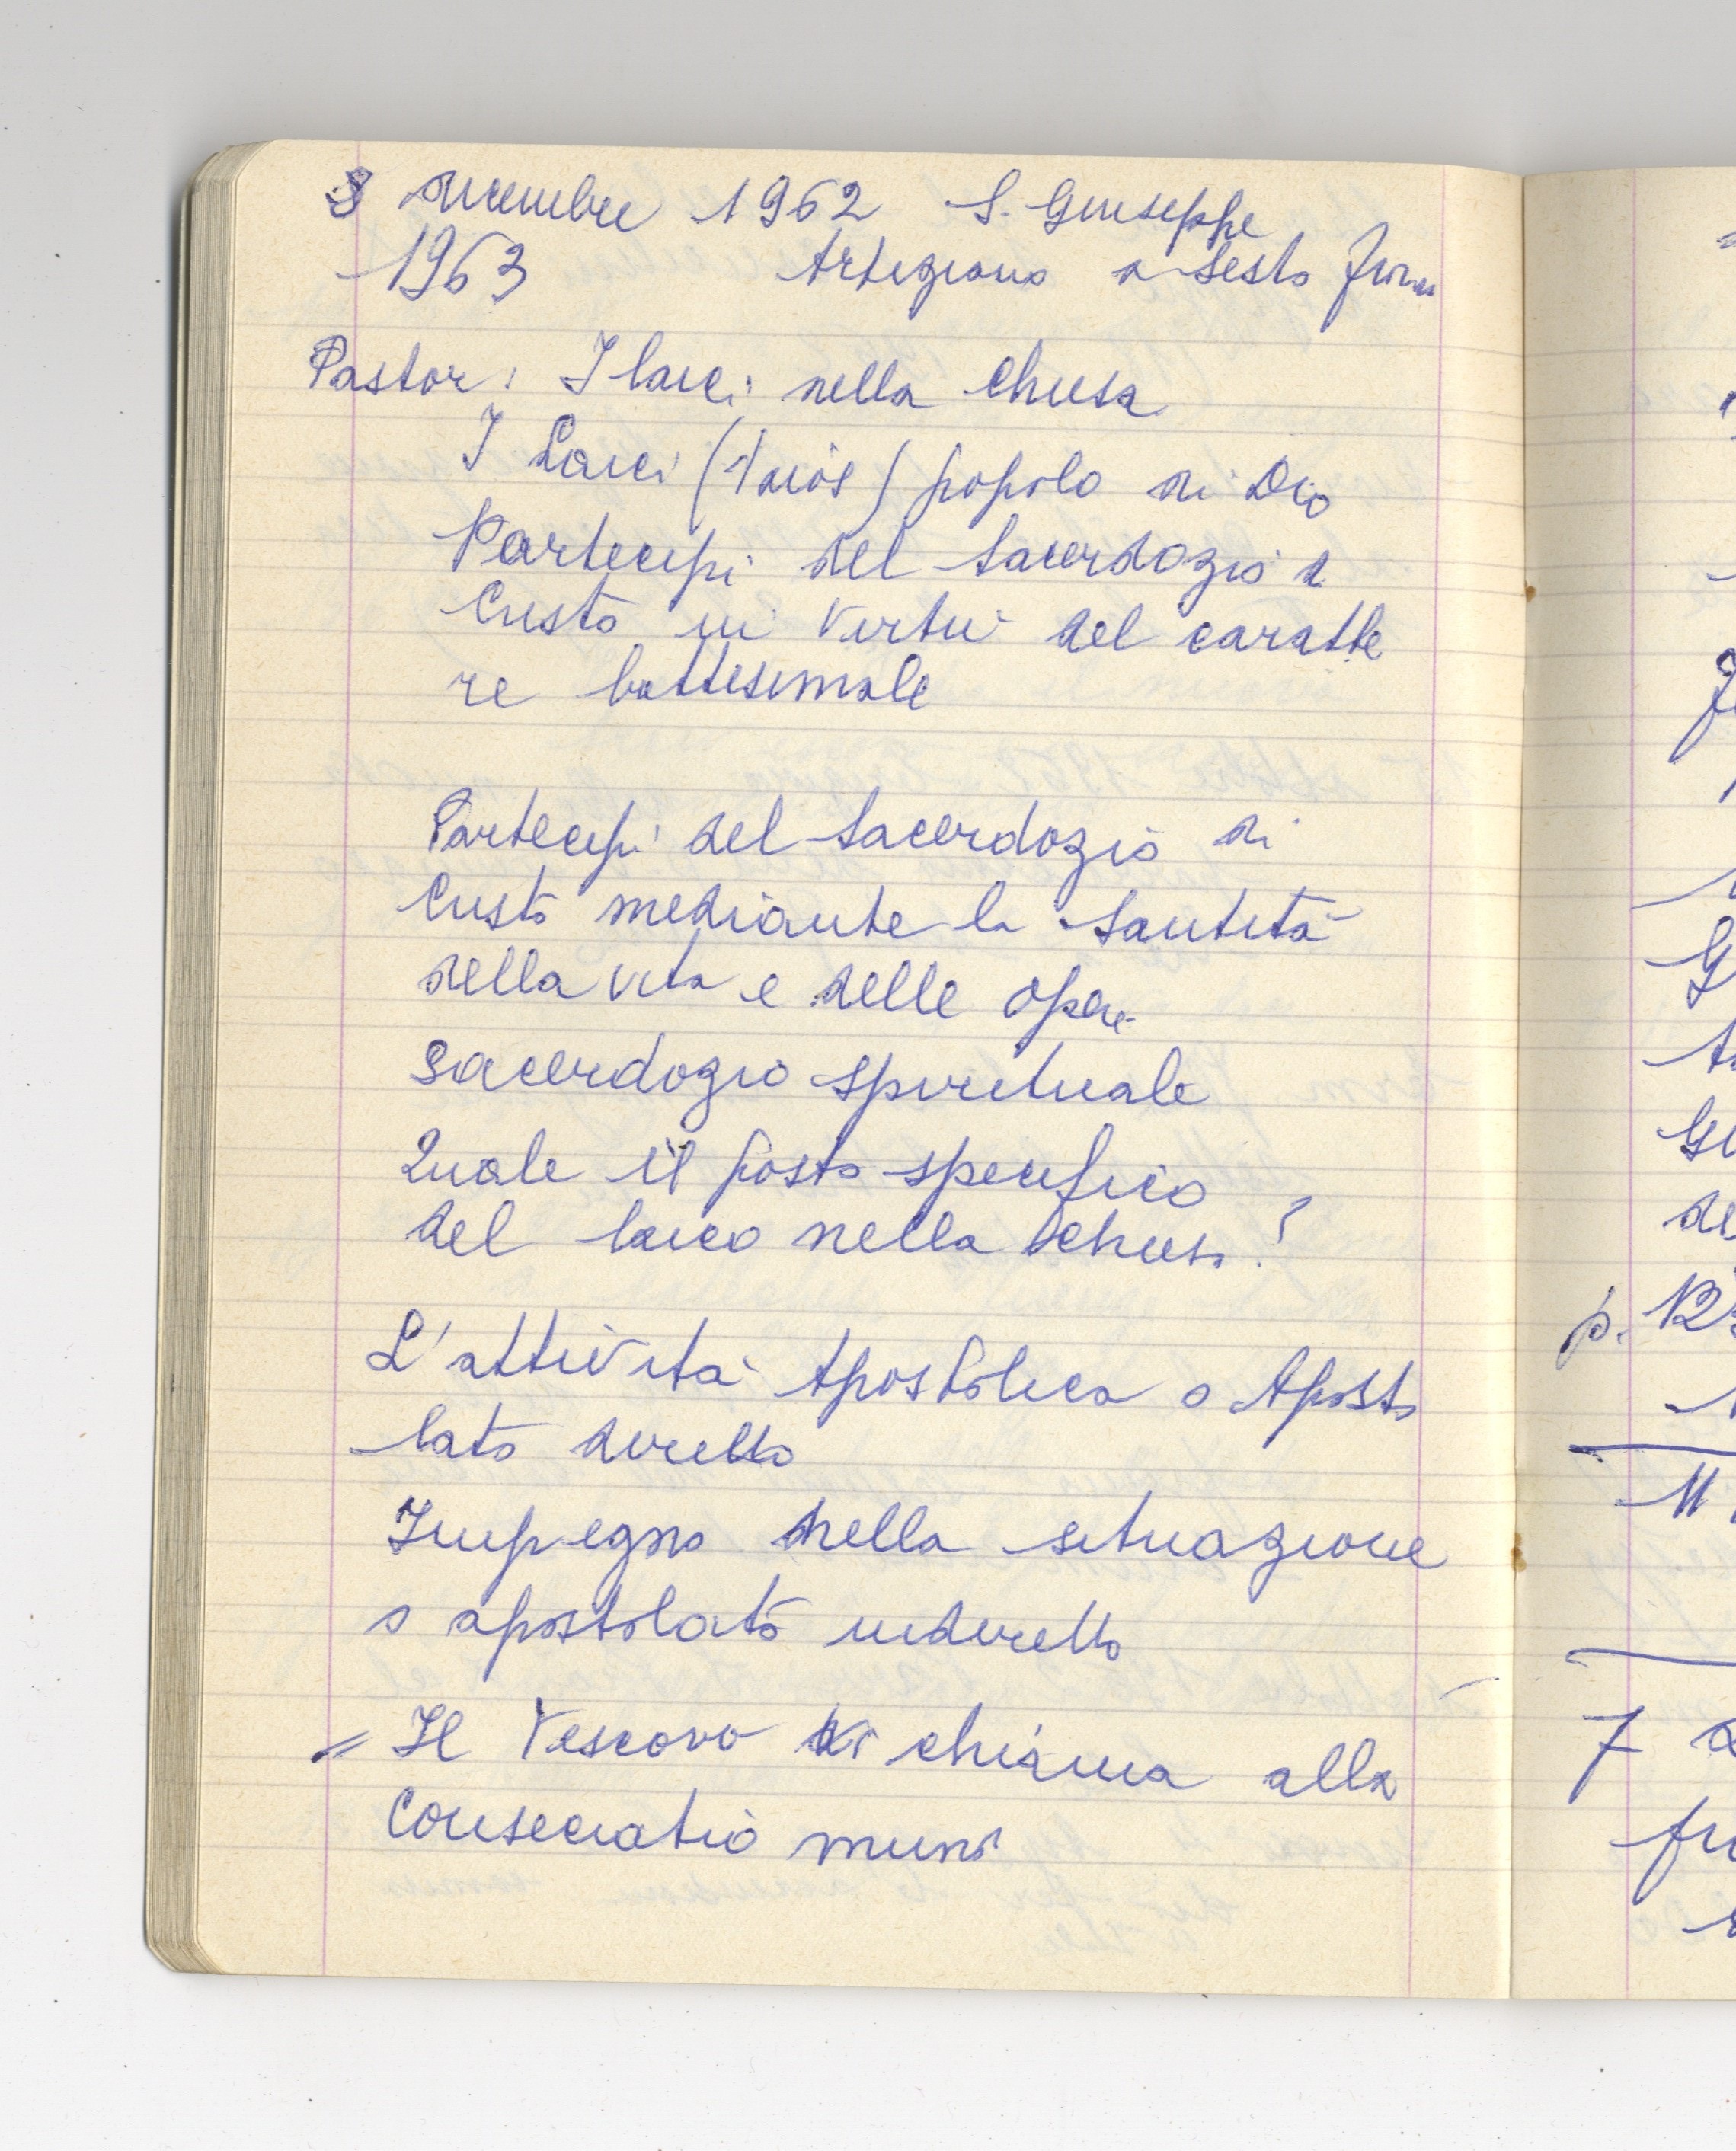 8 dicembre 1962 S. Giuseppe
1963 Artigiano a Sesto
Pastor: I laici nella Chiesa
I Laici (laiòs) popolo di Dio
Partecipi del Sacerdozio d
Cristo in Virtù del caratte
re battesimale
Partecipi del Sacerdozio di
Cristo mediante la Santità
della vita e delle opere
Sacerdozio spirituale
Quale il posto specifico
del laico nella Chiesa ?
L'attività Apostolica o Aposto
lato diretto
Impegno nella situazione
o apostolato indiretto
= Il Vescovo vi chiama alla
Consecratio mundi
p. 12
11
7